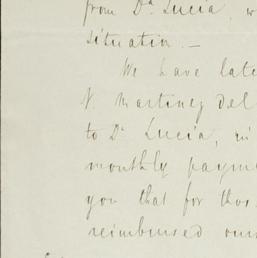 from Da. Lucia, w
situation. —
We have late
N. Martinez del
to Da. Lucia, in
monthly payme
you that for thos
reimbursed our